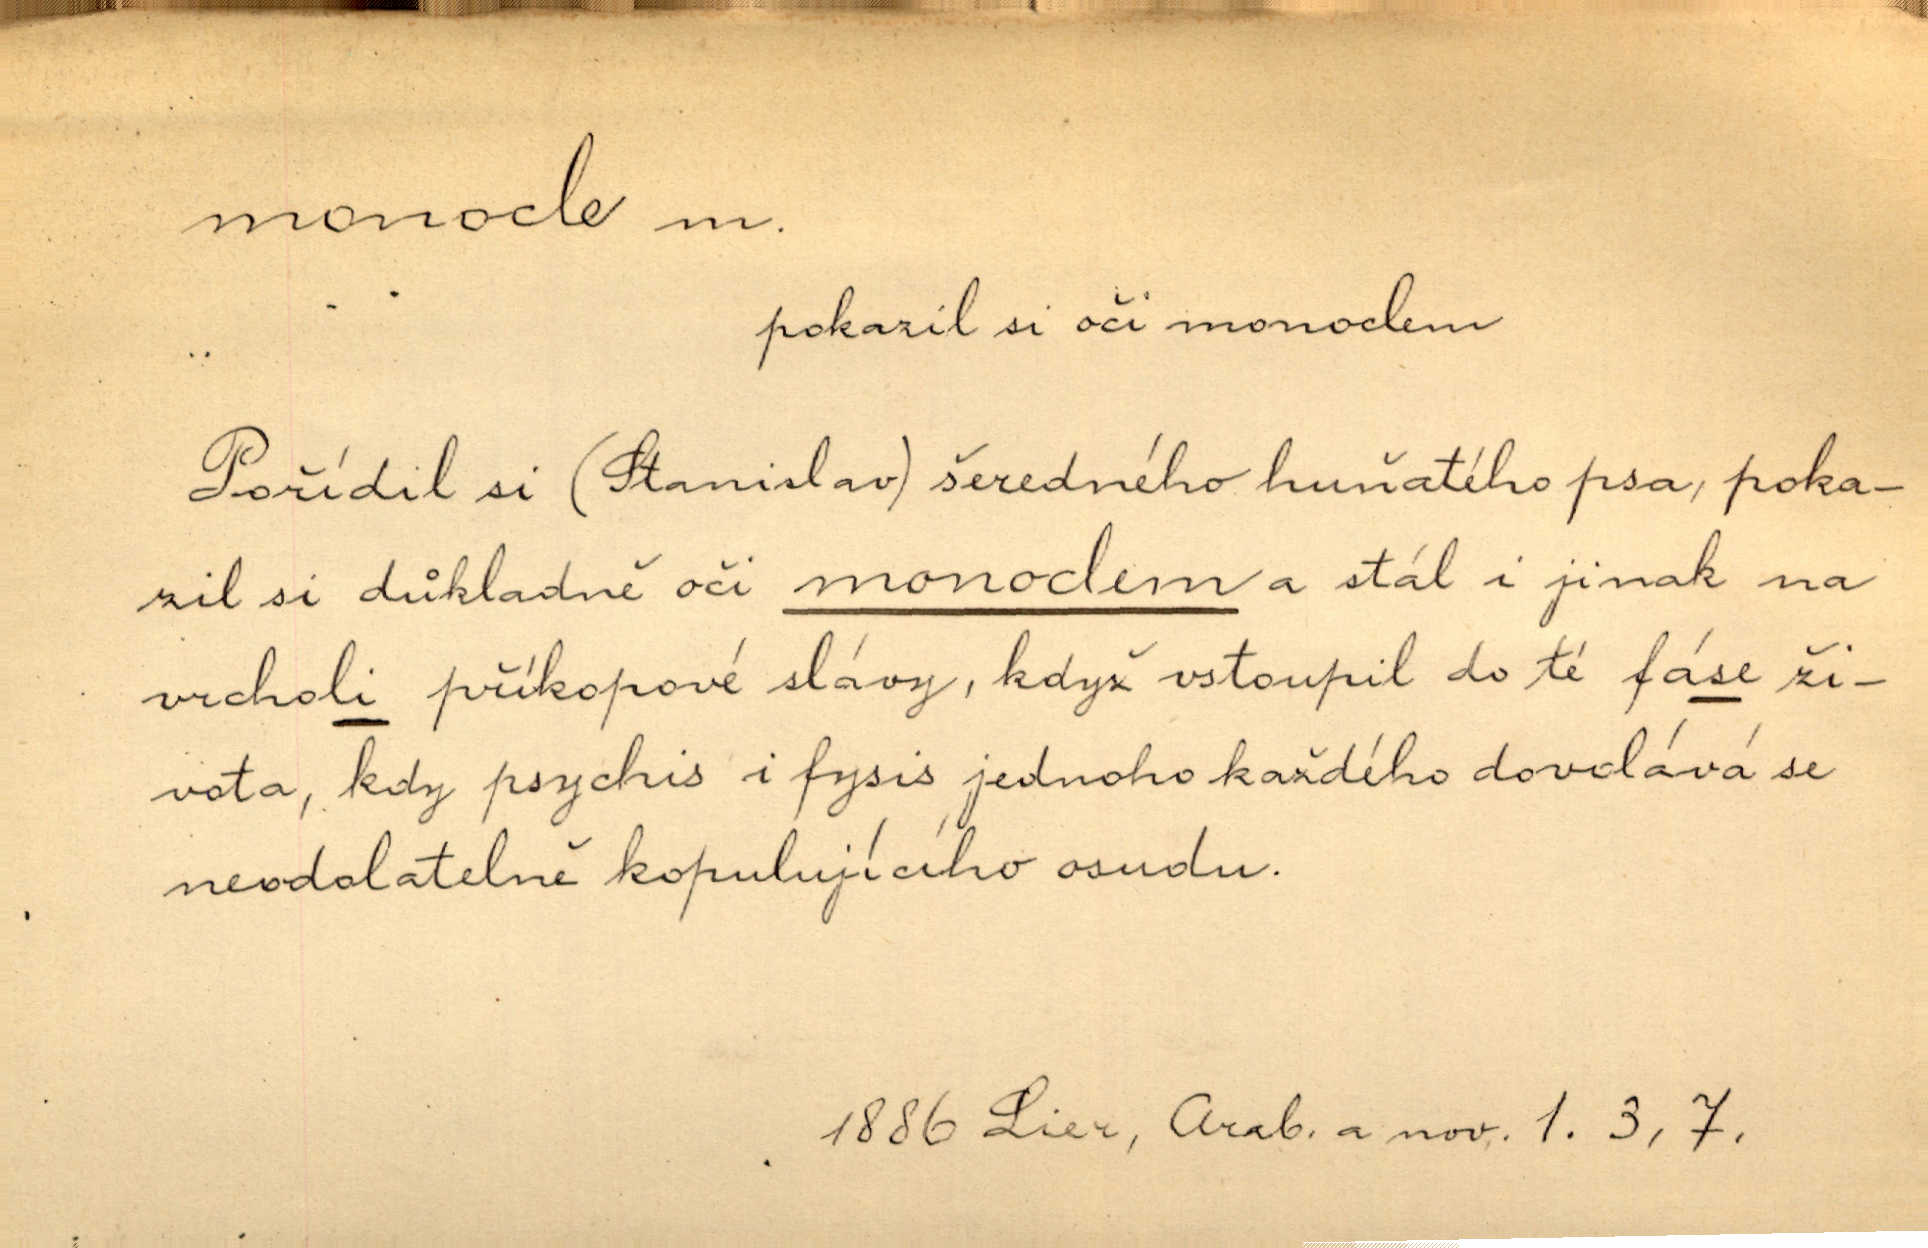 monocle m.
pokazil si oči monoclem
Pořídil si (Stanislav) šeredného huňatého psa, poka-
zil si důkladně oči monoclem a stál i jinak na
vrcholi příkopové slávy, když vstoupil do té fáse ži-
vota, kdy psychis i fysis jednoho každého dovolává se
neodolatelně kopulujícího osudu.
1886 Lier, Arab. a nov. 1. 3, 7.